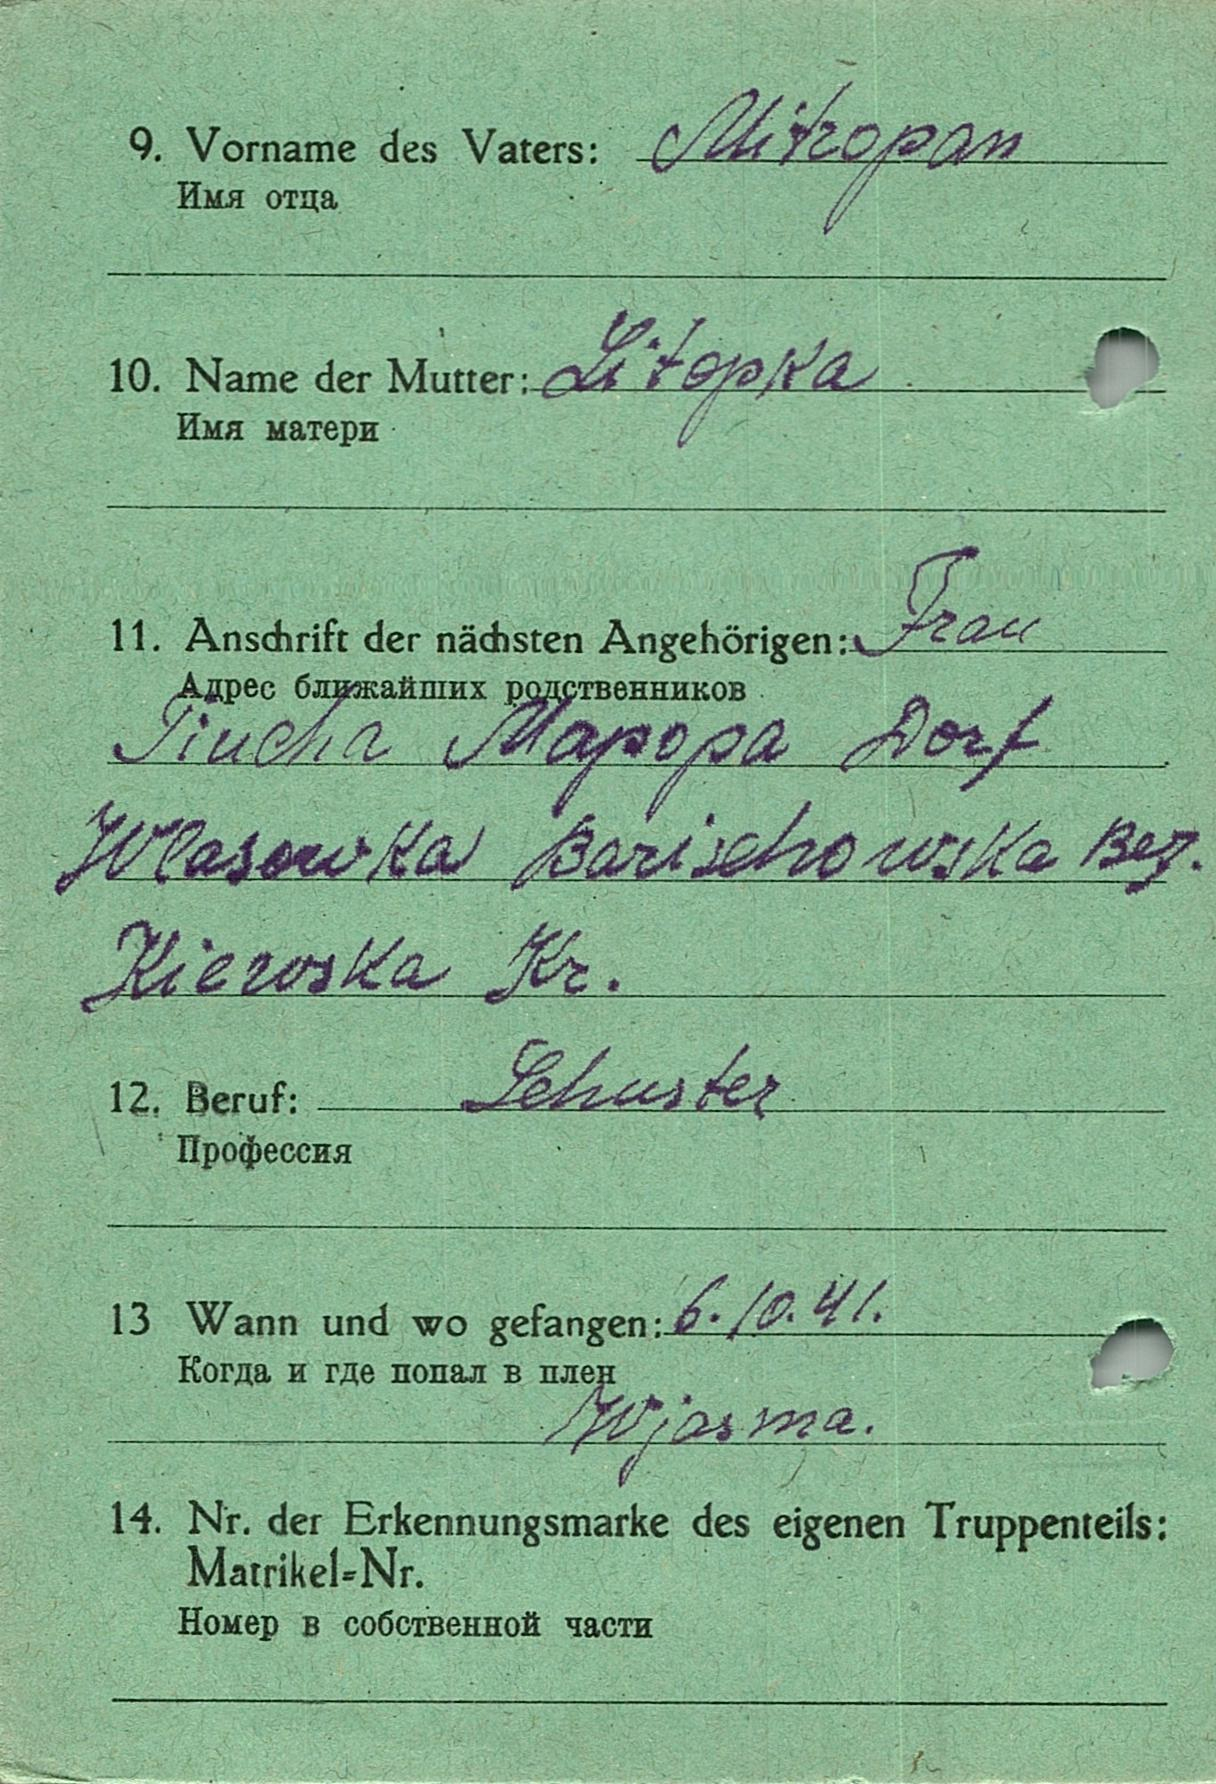 9. Vorname des Vaters: Mitropan
Имя отца
10. Name der Mutter: Litopka
Имя матери
11. Anschrift der nächsten Angehörigen: Frau
Адрес ближайших родственников
Mapopa Dorf
Wlasowka Barischowska Bez.
Kiewska Kr.
12. Beruf: Schuster
Профессия
13 Wann und wo gefangen: 6.10.41.
Когда и где попал в плен
Wjasma.
14. Nr. der Erkennungsmarke des eigenen Truppenteils:
Matrikel-Nr.
Номер в собственной части